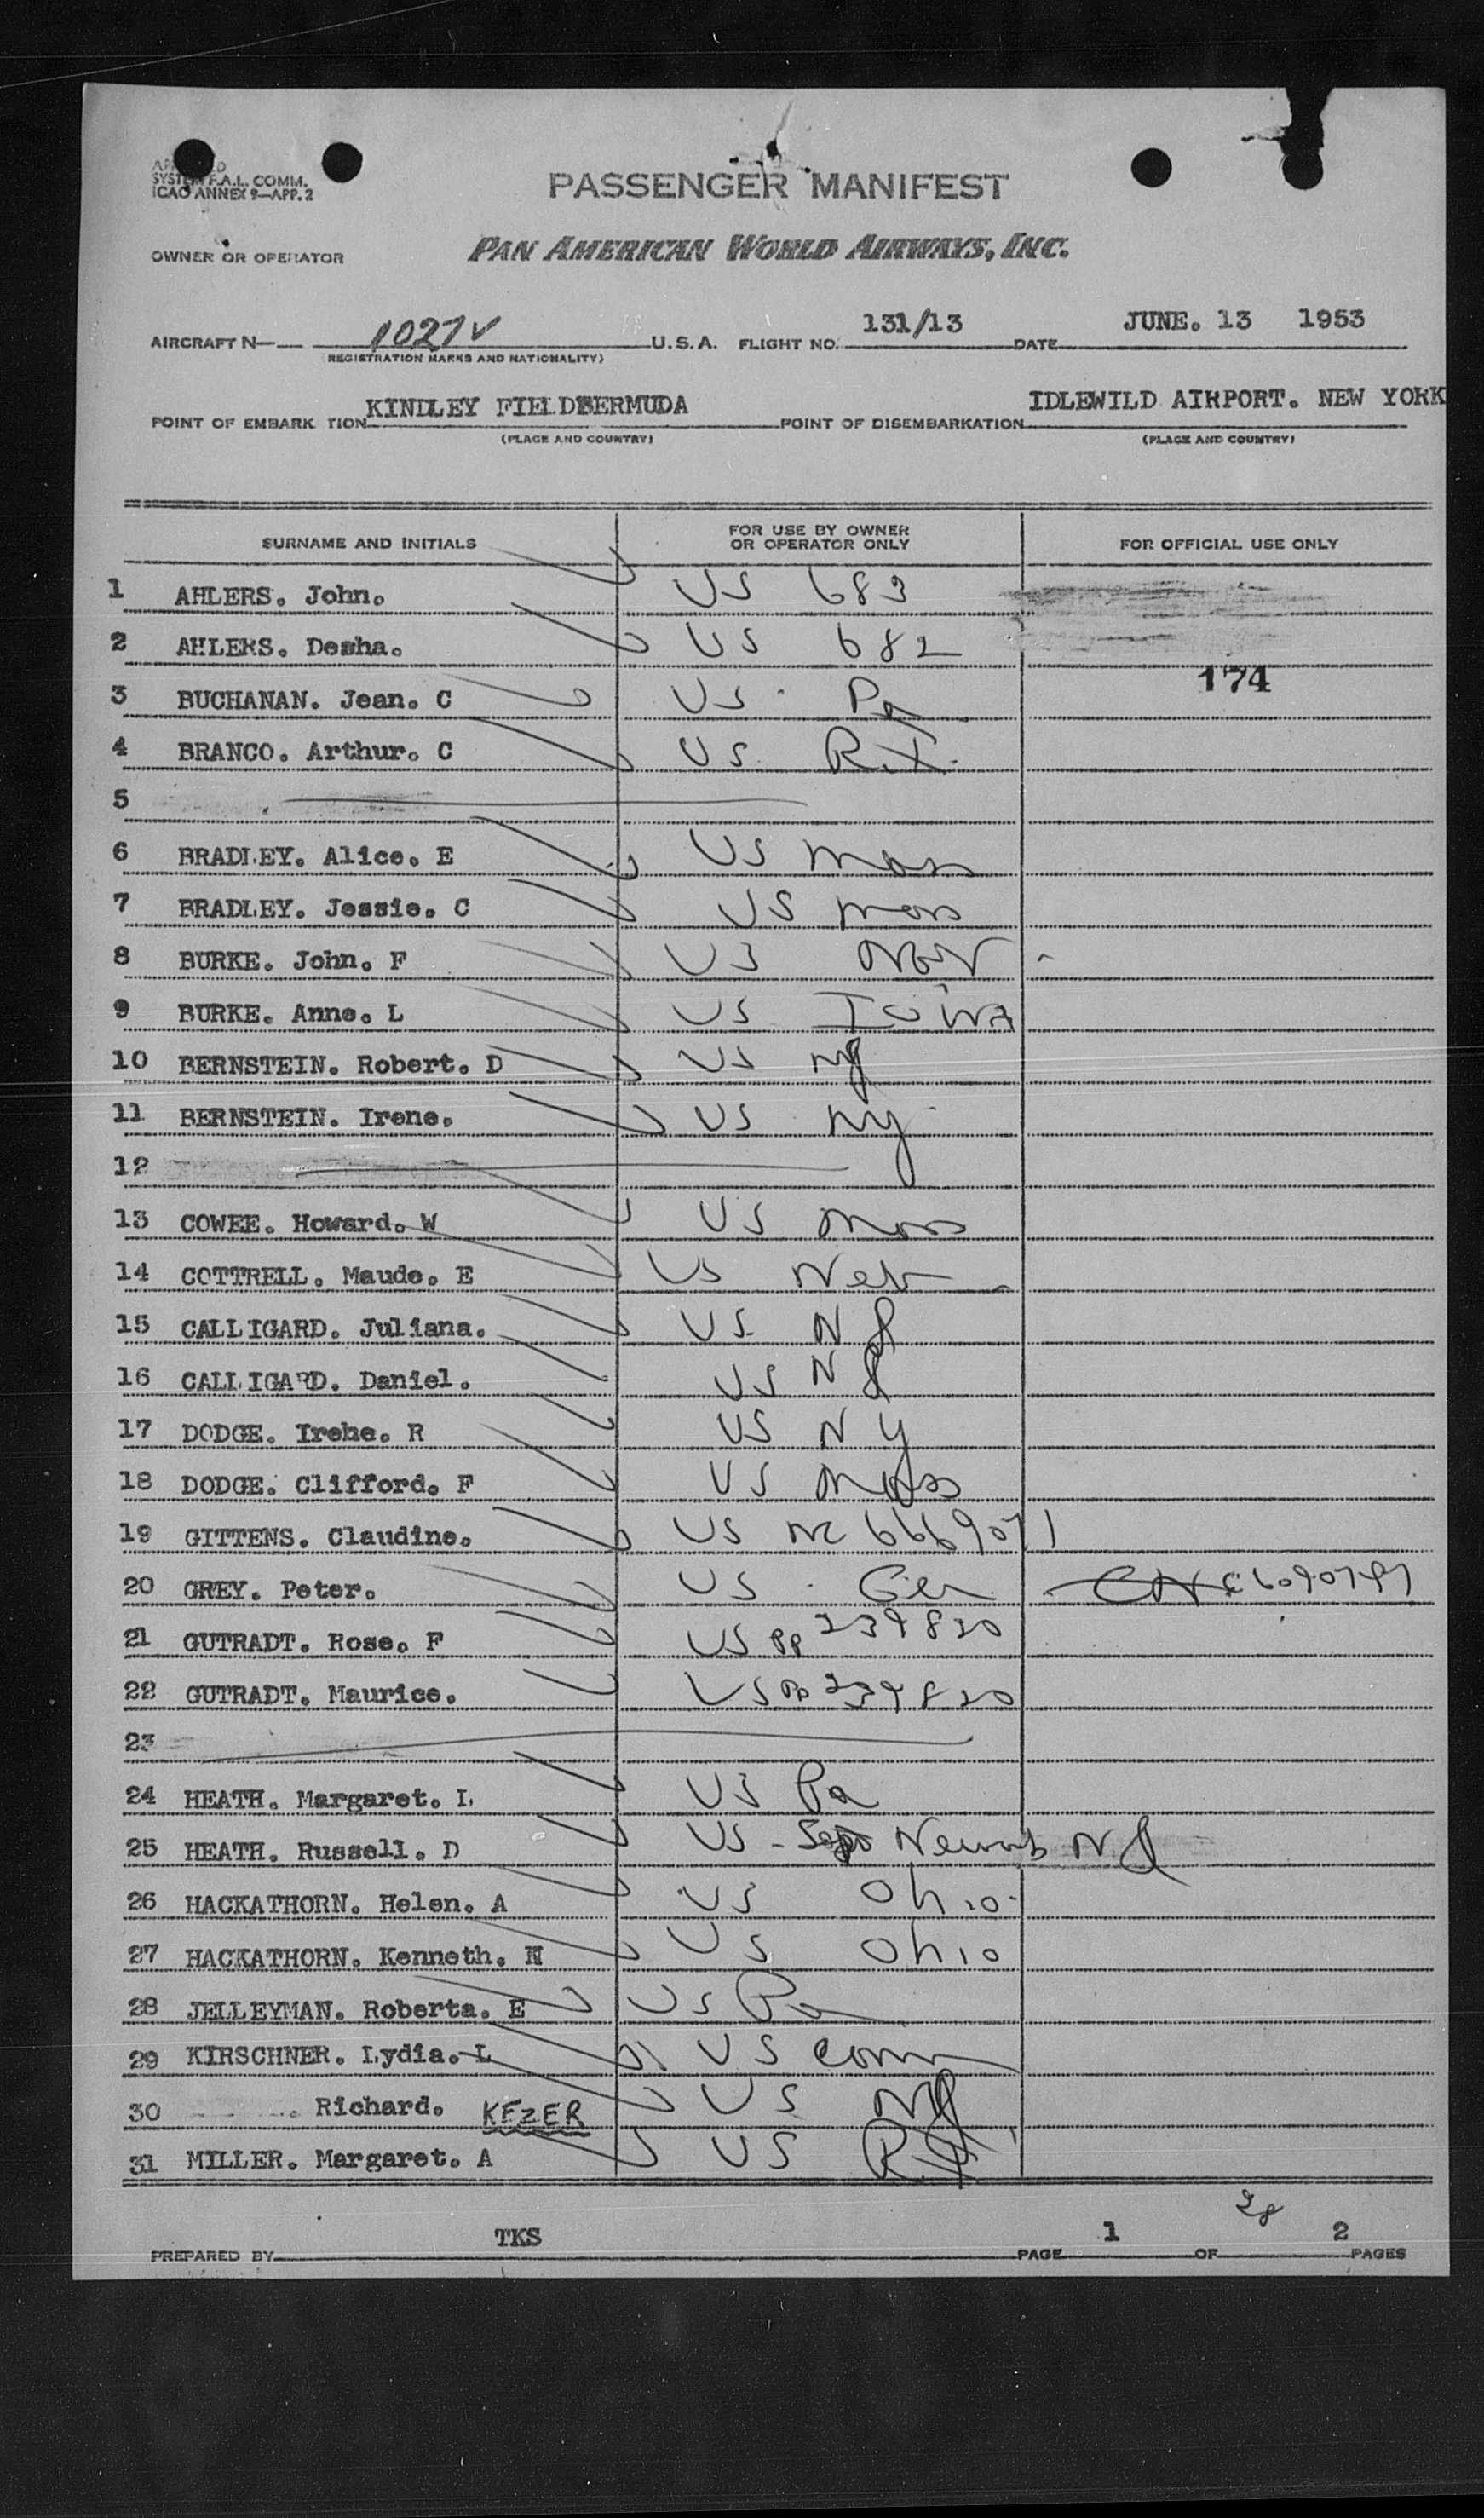 SYSTEM F.A.L. COMM.
ICAO ANNEX 9—APP. 2
PASSENGER MANIFEST
OWNER OR OPERATOR PAN AMERICAN WORLD AIRWAYS, INC.
AIRCRAFT N— 1027V U.S.A. FLIGHT NO. 131/13 DATE JUNE. 13 1953
(REGISTRATION MARKS AND NATIONALITY)
POINT OF EMBARK TION KINDLEY FIELDBERMUDA POINT OF DISEMBARKATION IDLEWILD AIRPORT. NEW YORK
(PLACE AND COUNTRY) (PLACE AND COUNTRY)
SURNAME AND INITIALS FOR USE BY OWNER OR OPERATOR ONLY FOR OFFICIAL USE ONLY
1 AHLERS. John. US 683
2 AHLERS. Desha. US 682
174
3 BUCHANAN. Jean. C US Pa
4 BRANCO. Arthur. C US R.I.
5
6 BRADLEY. Alice. E US Mass
7 BRADLEY. Jessie. C US Mass
8 BURKE. John. F US
9 BURKE. Anne. L US IOWA
10 BERNSTEIN. Robert. D US NY
11 BERNSTEIN. Irene. US NY
12
13 COWEE. Howard. W US Mass
14 COTTRELL. Maude. E US Neb
15 CALLIGARD. Juliana. US NJ
16 CALLIGARD. Daniel. US NJ
17 DODGE. Irene. R US NY
18 DODGE. Clifford. F US Mass
19 GITTENS. Claudine. US NC 6669071
20 GREY. Peter. US Ger
21 GUTRADT. Rose. F US PP 239820
22 GUTRADT. Maurice. US PP 239820
23
24 HEATH. Margaret. L US Pa
25 HEATH. Russell. D US Newark NJ
26 HACKATHORN. Helen. A US Ohio
27 HACKATHORN. Kenneth. H US Ohio
28 JELLEYMAN. Roberta. E US Pa
29 KIRSCHNER. Lydia. L US Conn
30 Richard. KEZER US NJ
31 MILLER. Margaret. A US RI
28
PREPARED BY TKS PAGE 1 OF 2 PAGES